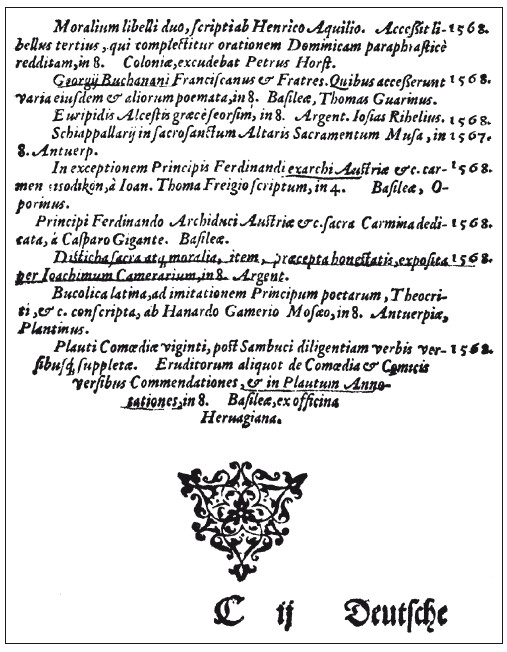 Moralium libelli duo, ſcripti ab Henrico Aquilio. Acceſsit li- 1568.
bellus tertius, qui complectitur orationem Dominicam paraphraſticè
redditam, in 8. Coloniæ, excudebat Petrus Horſt.
Georgij Buchanani Franciſcanus & Fratres. Quibus acceſſerunt 1568.
varia eiuſdem & aliorum poemata, in 8. Baſileæ, Thomas Guarinus.
Euripidis Alceſtis græcè ſeorſim, in 8. Argent. Ioſias Rihelius. 1568.
Schiappallarij in ſacroſanctum Altaris Sacramentum Muſa, in 1567.
8. Antuerp.
In exceptionem Principis Ferdinandi exarchi Auſtriæ &c. car- 1568.
men, à Ioan. Thoma Freigio ſcriptum, in 4. Baſileæ, O-
porinus.
Principi Ferdinando Archiduci Auſtriæ &c. ſacra Carmina dedi- 1568.
cata, à Caſparo Gigante. Baſileæ.
Diſticha ſacra atq; moralia, item, præcepta honeſtatis, expoſita 1568.
per Ioachimum Camerarium, in 8. Argent.
Bucolica latina, ad imitationem Principum poetarum, Theocri-
ti, & c. conſcripta, ab Hanardo Gamerio Moſæo, in 8. Antuerpiæ,
Plantinus.
Plauti Comœdiæ viginti, poſt Sambuci diligentiam verbis ver- 1568.
ſibuſq́; ſuppletæ. Eruditorum aliquot de Comœdia & Comicis
verſibus Commendationes, & in Plautum Anno-
tationes, in 8. Baſileæ, ex officina
Heruagiana.
C ij Deutſche